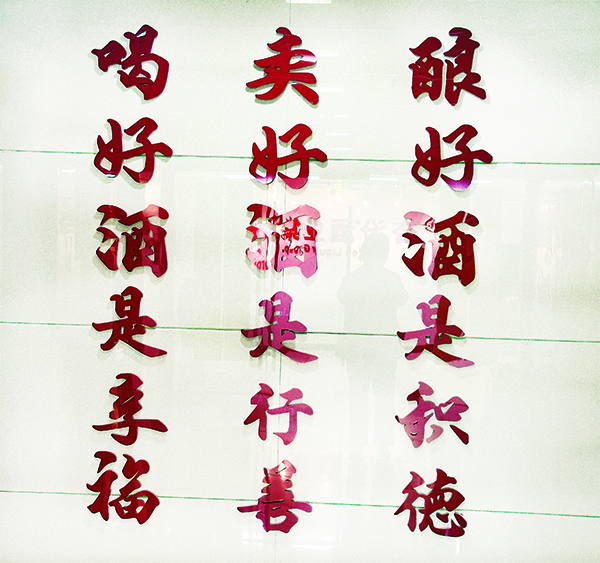 酿好酒是积德
卖好酒是行善
喝好酒是享福